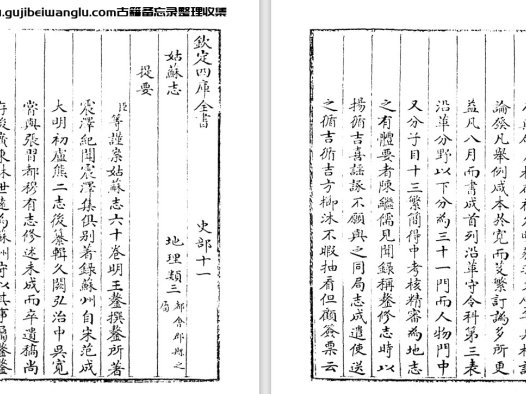 .gujibeiwanglu.com古籍备忘录整理收集
欽定四庫全書
史部十一
姑蘇志
地理類三
都會郡縣之
屬
提要
臣等謹案姑蘇志六十卷明王鏊撰鏊所著
震澤紀聞震澤集俱别著錄蘇州自宋范成
大明初盧熊二志後纂輯久闕弘治中吳寛
嘗與張習都穆有志修述未成而卒遺稿尚
論發凡舉例咸本於寛而芟繁訂譌多所更
益凡八月而書成首列沿革守令科第三表
沿革分野以下分為三十一門而人物門中
又分子目十三繁簡得中考核精當為地志
之有體要者陳繼儒見聞錄稱鏊修志時以
楊循吉喜謡諑不願與之同局志成遣使送
之循吉循吉方櫛沐不暇抽看但顧簽票云